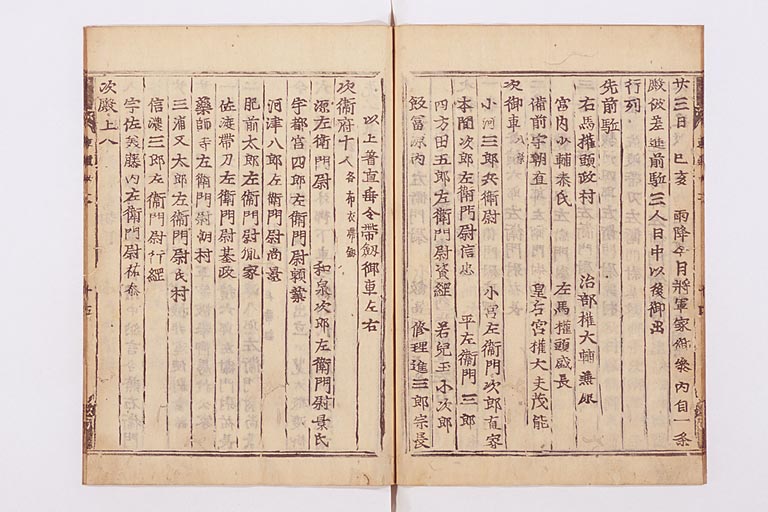 廿三日 己亥 雨降今日将軍家御参内自一条
殿被差進前駈三人日中以後御出
行列
先前駈
右馬權頭政村 治部權大輔兼康
宮内少輔泰氏 左馬權頭盛長
備前守朝直 皇后宮權大夫茂能
次御車八葉
小河三郎兵衛尉 小宮左衛門次郎直家
本間次郎左衛門尉信忠 平左衛門三郎
四方田五郎左衛門尉資綱 若兒玉小次郎
飯冨源内 修理進三郎宗長
以上著直垂令帶劔御車左右
次衛府十人各布衣帶劔
源左衛門尉 和泉次郎左衛門尉景氏
宇都宮四郎左衛門尉頼業
河津八郎左衛門尉尚景
肥前太郎左衛門尉胤家
佐渡帶刀左衛門尉基政
藥師寺左衛門尉朝村
三浦又太郎左衛門尉氏村
信濃三郎左衛門尉行綱
宇佐美藤内左衛門尉祐泰
次殿上人